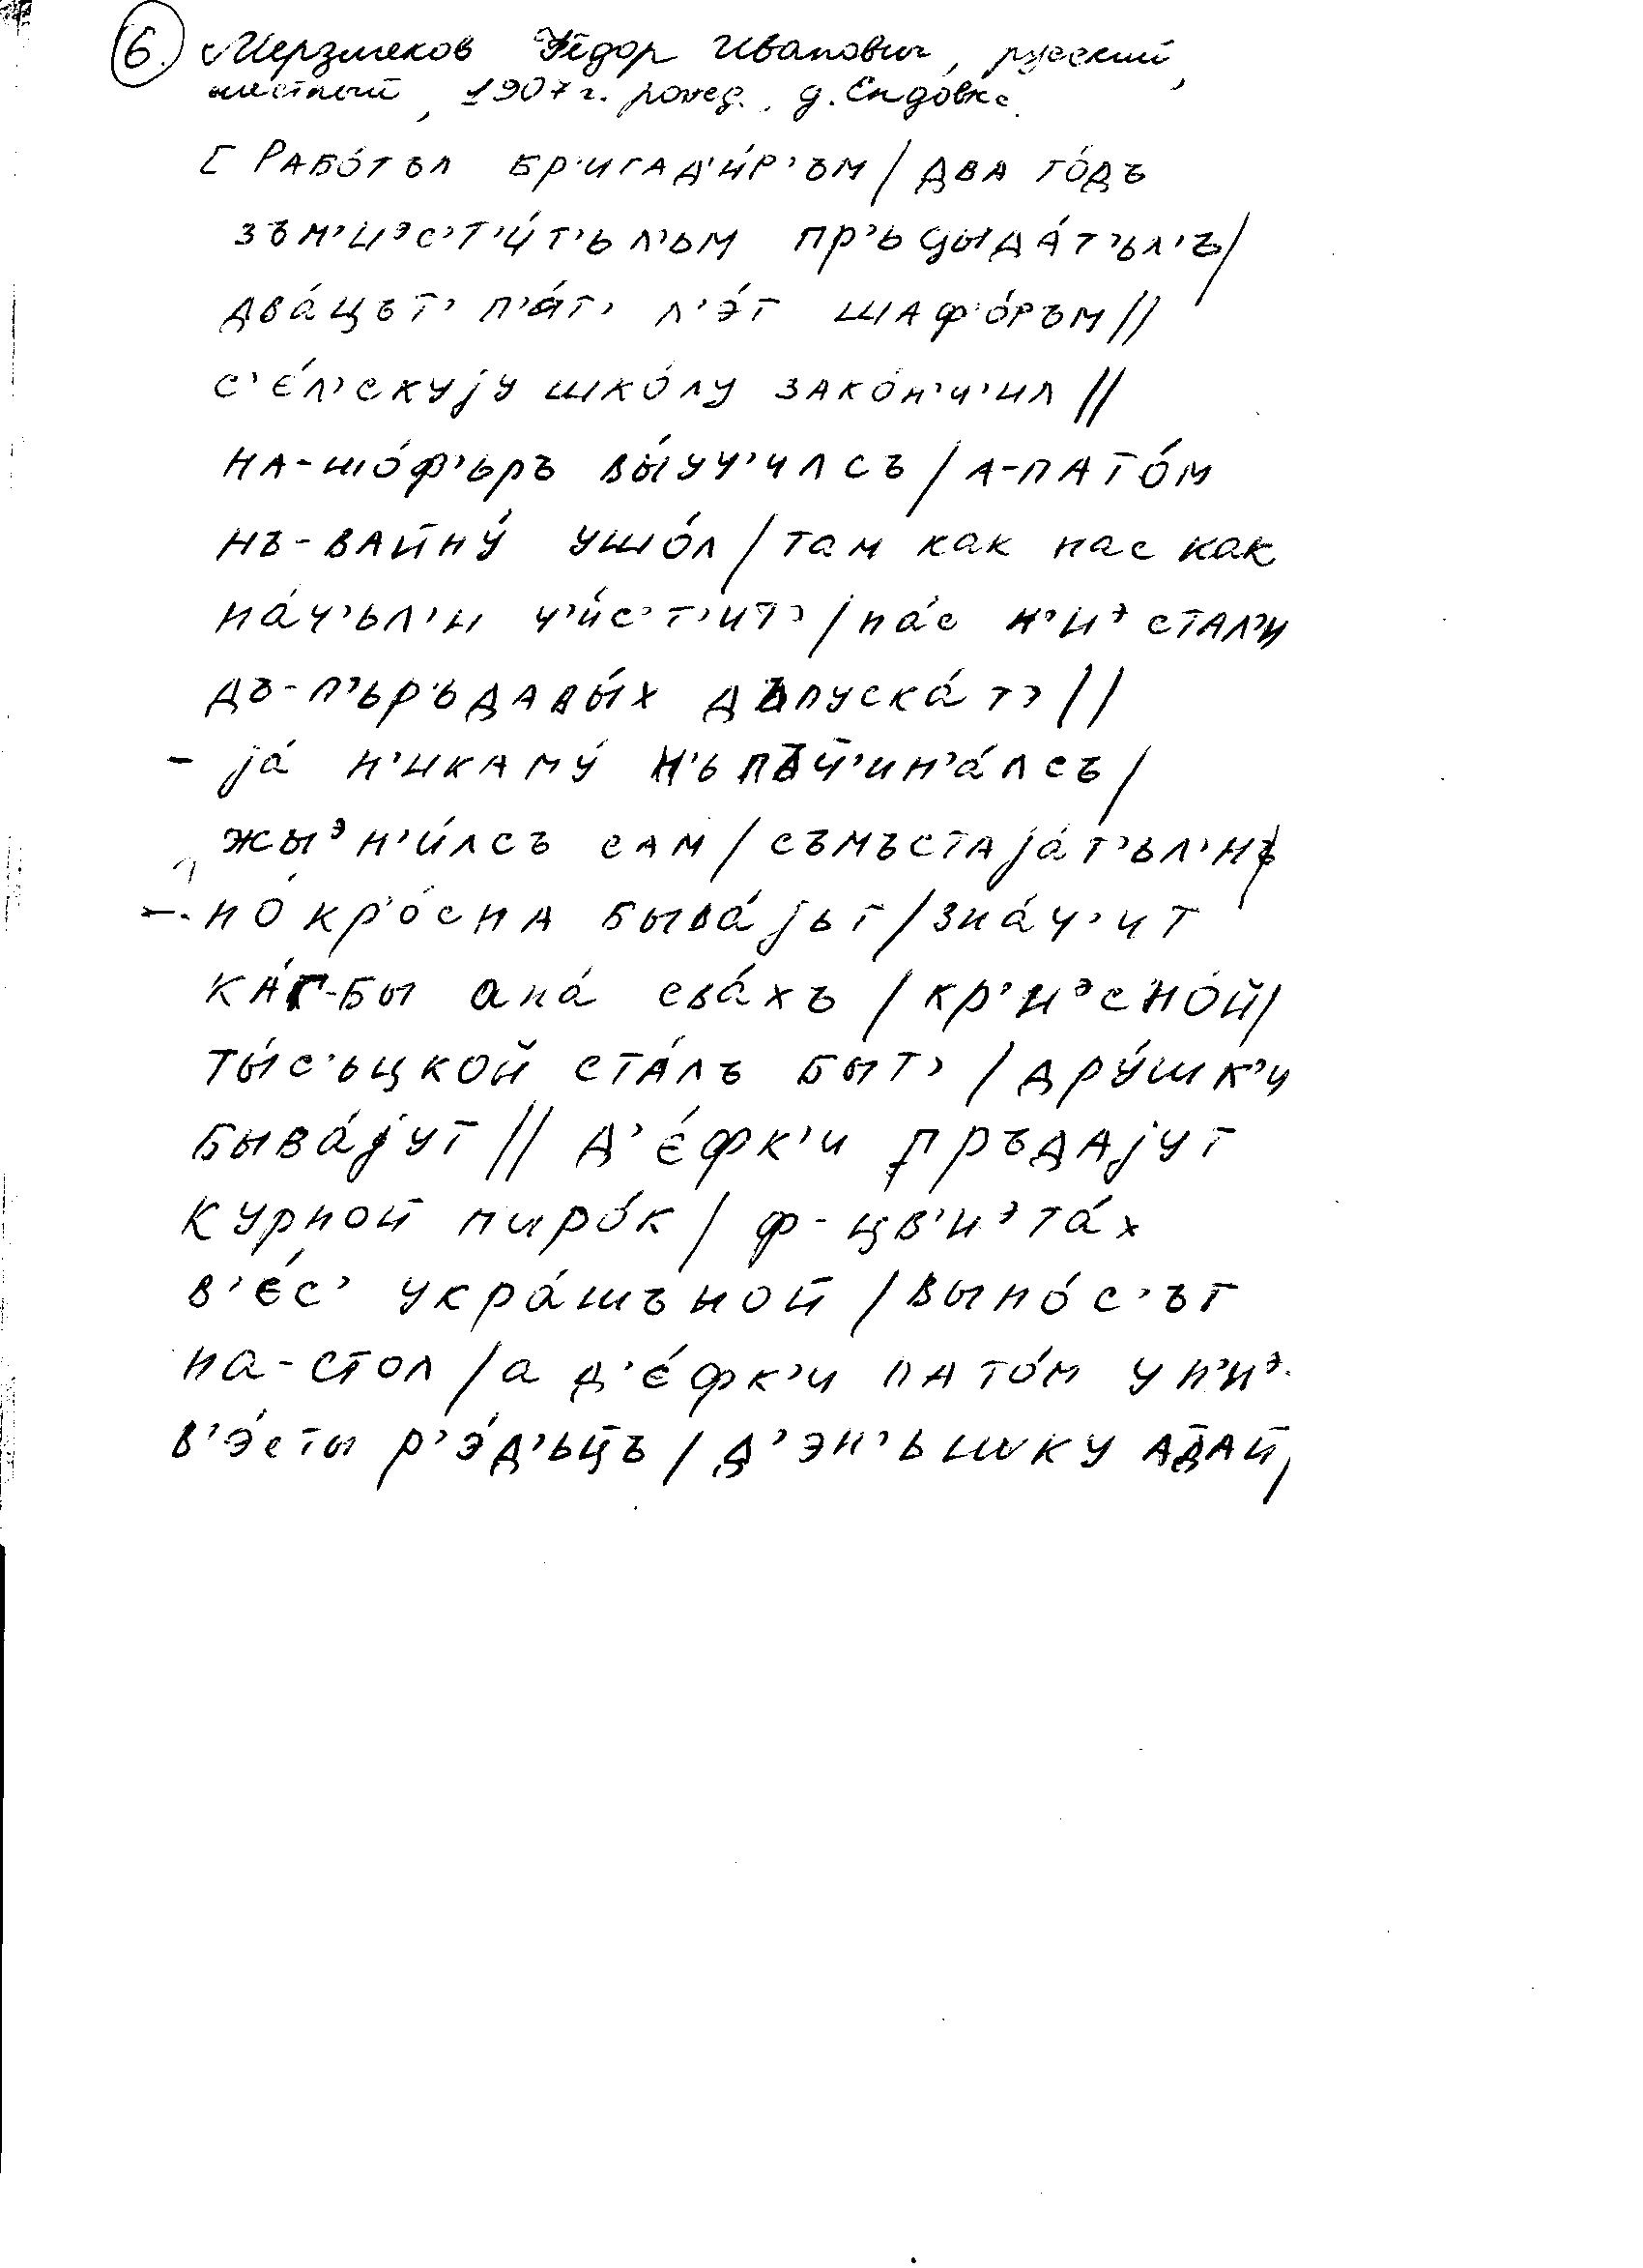 6. Мерзляков Фёдор Иванович, русский,
местный, 1907 г. рожд., д. Ендовка.
[ РАБО́ТЪЛ БР'ИГАД'И́Р'ЪМ / ДВА ГО́ДЪ
ЗЪМ'ИЭС'Т'И́Т'ЬЛ'ЬМ ПР'ЬЦЫДА́Т'ЬЛ'Ъ /
ДВА́ЦЪТ' П'А́Т' Л'Э́Т ШАФ'О́РЪМ //
С'Е́Л'СКУJУ ШКО́ЛУ ЗАКО́Н'Ч'ИЛ //
НА-ШО́Ф'ЬРЪ ВЫ́УЧ'ИЛСЪ / А-ПАТО́М
НЪ-ВАЙНУ́ УШО́Л / там как нас как
НА́Ч'ЬЛ'И Ч'И́С'Т'ИТ' / НА́С Н'ИЭ СТАЛ'И
ДЪ-П'ЬР'ЪДАВЫ́Х ДЪПУСКА́Т' //
- JА́ Н'ИКАМУ́ Н'Ь ПЪЧ'ИН'А́ЛСЪ /
ЖЫЭН'И́ЛСЪ САМ / СЪМЪСТАJА́Т'ЬЛ'НЪ /
-. НО́ КР'О́СНА БЫВА́JЬТ / ЗНА́Ч'ИТ
КА́Г-БЫ АНА́ СВА́ХЪ / КР'ИЭСНО́Й /
ТЫ́С'ЬЦКОЙ СТА́ЛЪ БЫТ' / ДРУ́ШК'И
БЫВА́JУТ // Д'Е́ФК'И ПРЪДАJУТ
КУРНОЙ ПИРО́К / Ф-ЦВ'ИЭТА́Х
В'Е́С' УКРА́ШЪНОЙ / ВЫНО́С'ЪТ
НА-СТОЛ / А Д'Е́ФК'И ПАТО́М У Н'ИЭ-
В'Э́СТЫ Р'Э́Д'ЬЦ̄Ъ / Д'ЭН'ЬШКУ АД̄АЙ,